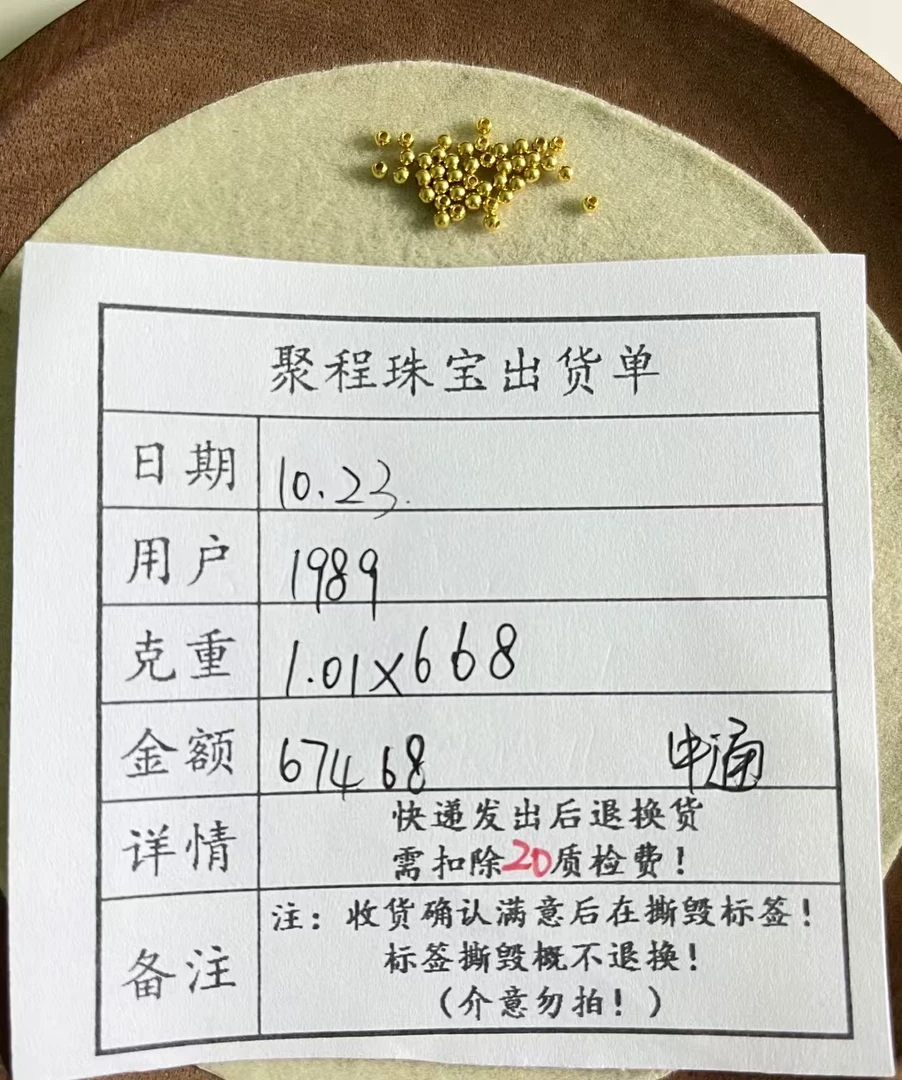 聚程珠宝出货单
日期 10.23.
用户 1989
克重 1.01×668
金额 67468 申通
详情 快递发出后退换货
需扣除20质检费！
备注 注：收货确认满意后在撕毁标签！
标签撕毁概不退换！
（介意勿拍！）